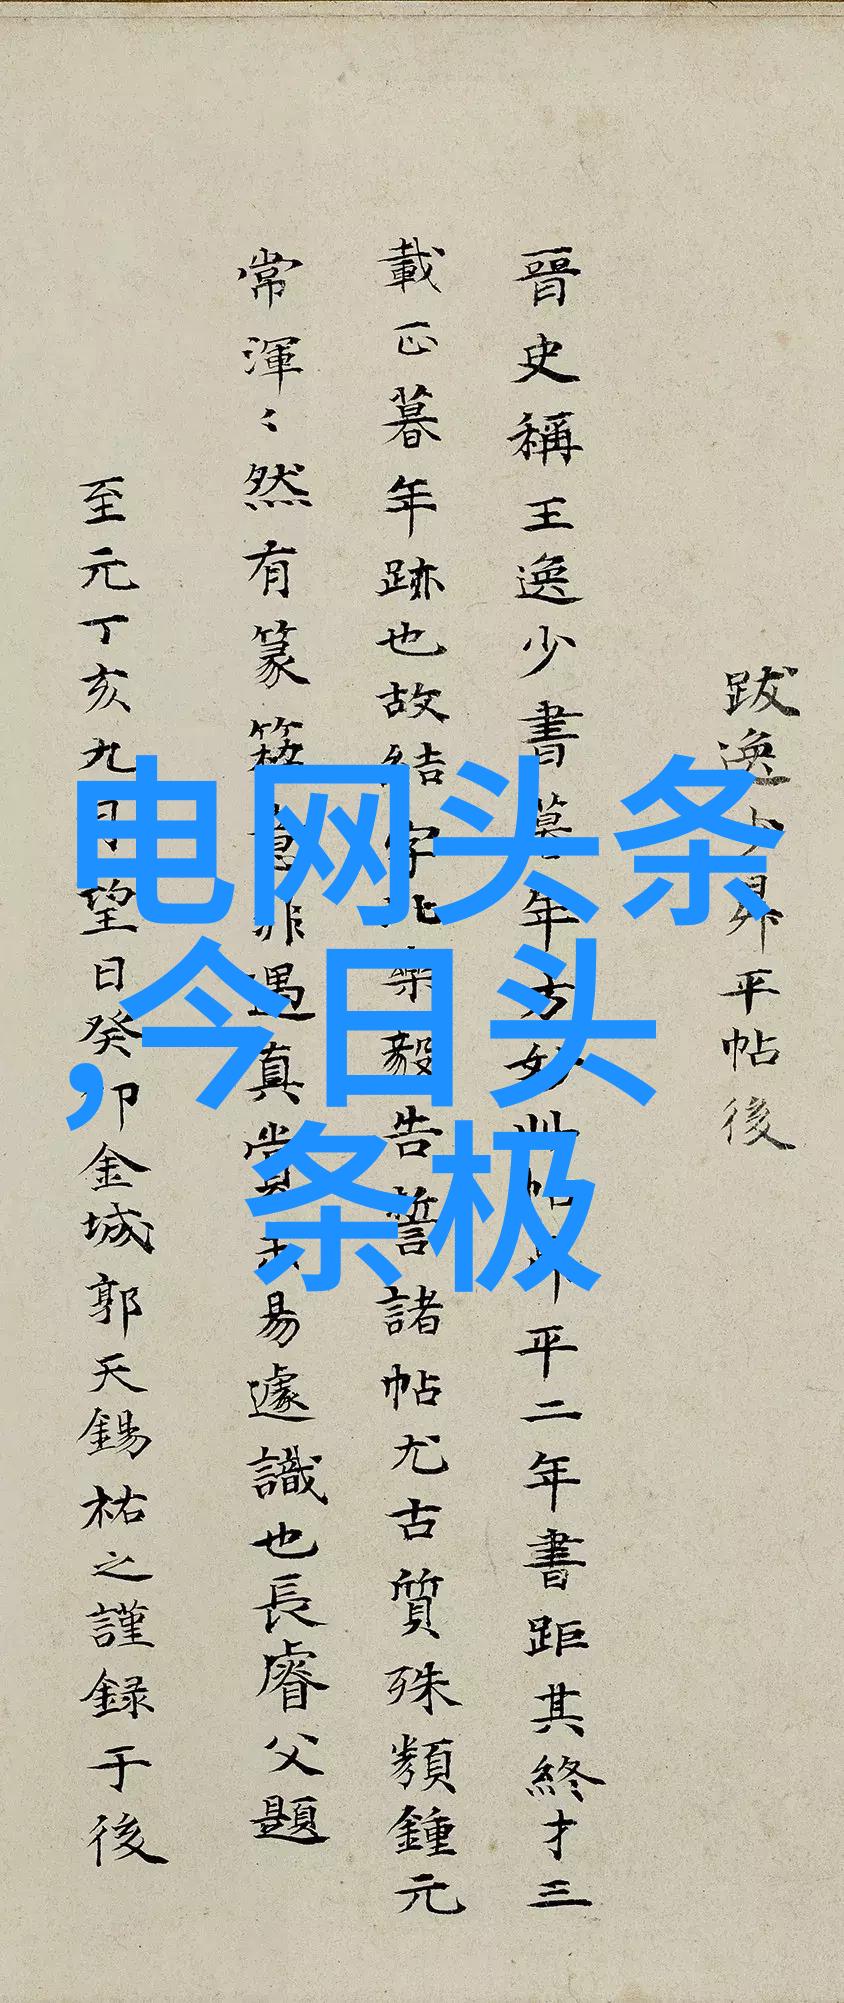 电网头条
,今日头
条极
跋逸少昇平帖後
晉史稱王逸少書暮年方妙此帖升平二年書距其終才三
載正暮年跡也故結字比樂毅告誓諸帖尤古質殊類鍾元
常渾〻然有篆籀意非遇真賞未易遽識也長睿父題
至元丁亥九月望日癸卯金城郭天錫祐之謹録于後